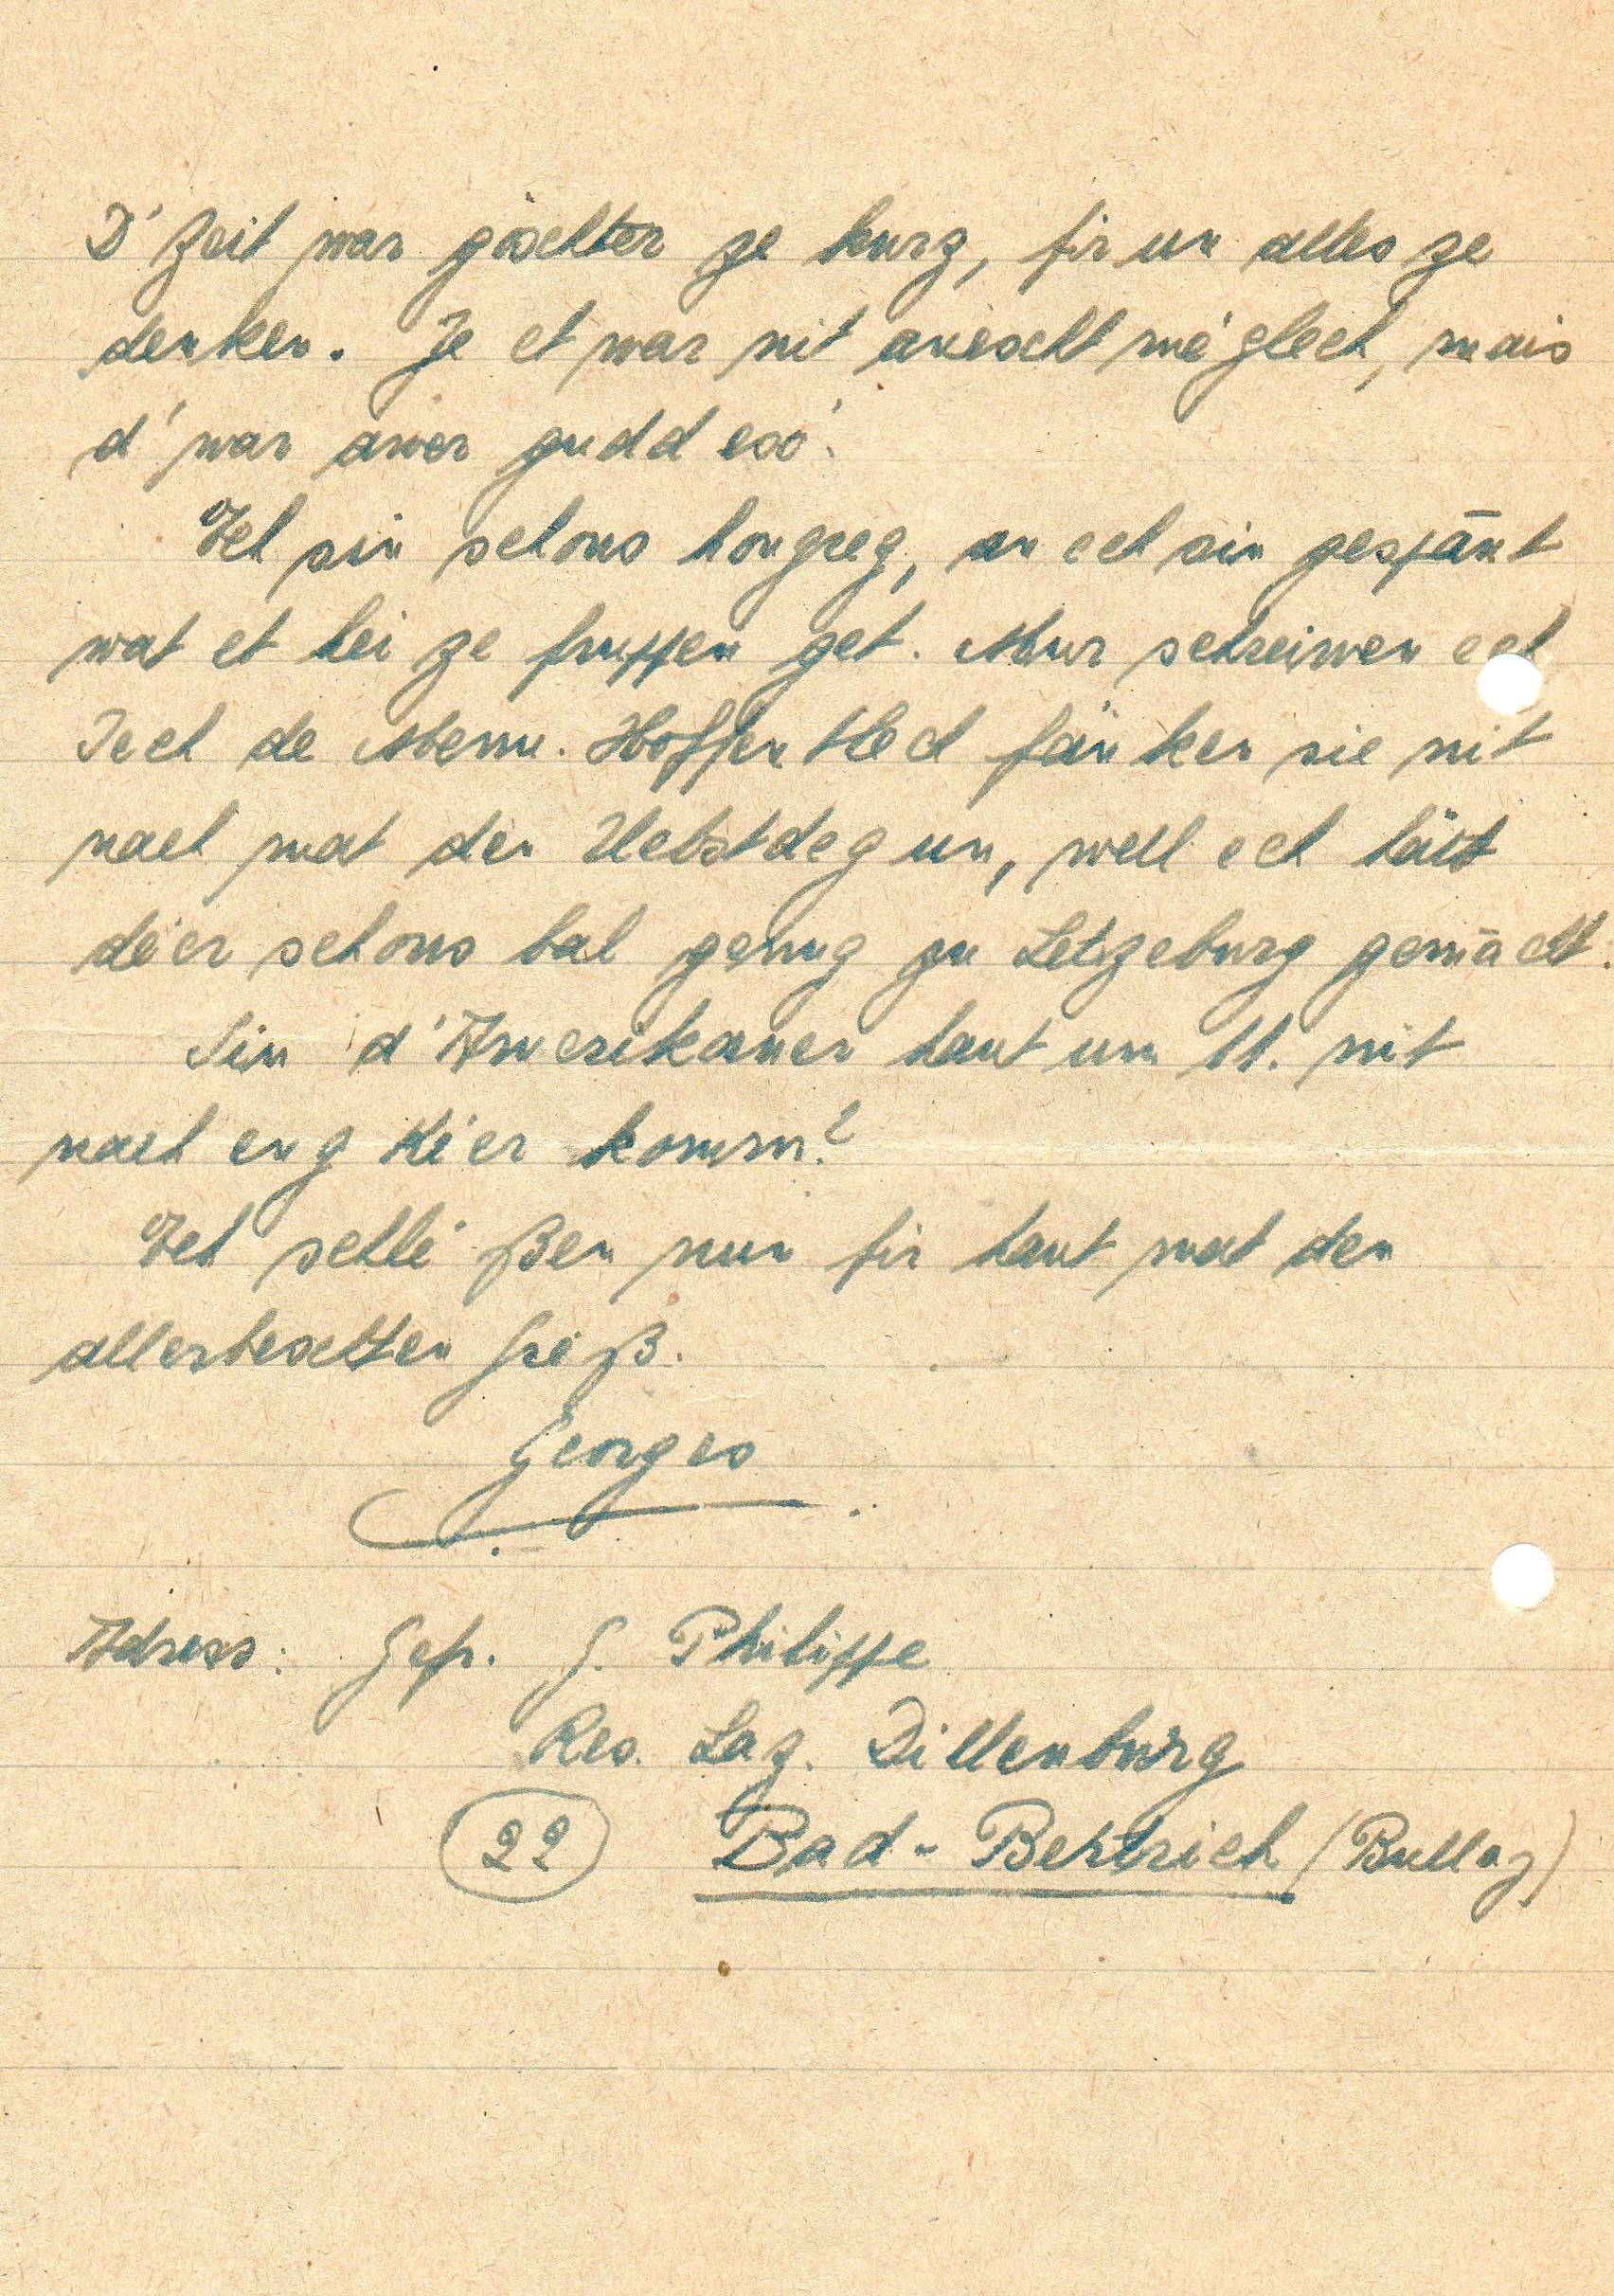 D'Zeit war gëschter ze kurz, fir un alles ze
denken. Je et war nit anescht méglech, mais
d'war awer gudd esó.
Ech sin schons hongreg, an ech sin gespānt
wat et hei ze fruppen get. Mur schreiwen ech
Iech de Menu. Hoffentlech fänken sie nit
nach mat der Uebstdeg un, well ech hätt
déer schons bal genug zu Letzeburg gemācht.
Sin d'Amerikaner haut um 11. nit
nach eng Kéier komm?
Ech schléßen nun fir haut mat den
allerbeschten Gréß.
Georges
Adress: Gefr. G. Philippe
Res. Laz. Dillenburg
22 Bad-Bertrich (Bullay)